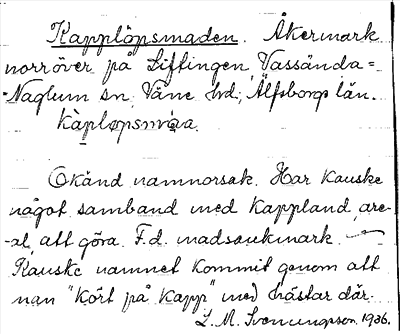 Kapplöpsmaden. Åkermark
norröver på Siffingen Vassända=
Naglum sn, Väne hd; Älfsborgs län.
Okänd namnorsak. Har kanske
något samband med Kappland, are-
al, att göra. F.d. madsankmark. —
Kanske namnet kommit genom att
man "kört på kapp" med hästar där.
L. M. Svenungsson. 1936.